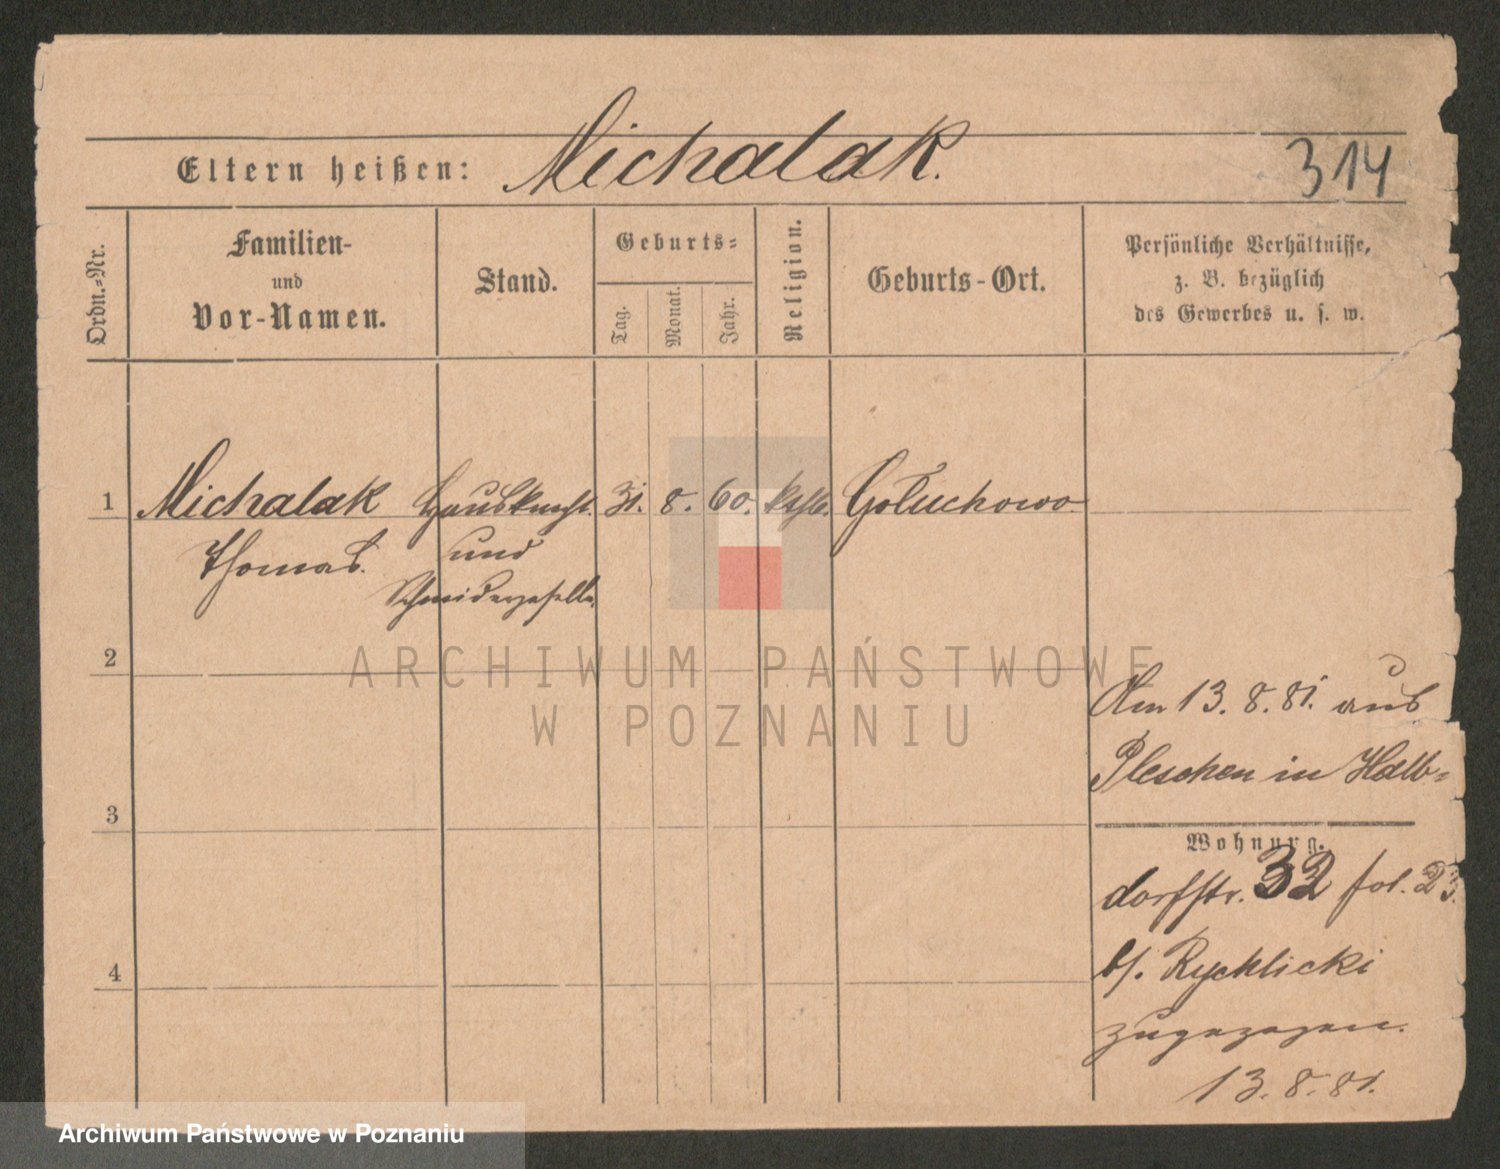 Eltern heißen: Michalak.
314
Ordn.-Nr.
Familien-
und
Vor-Namen.
Stand.
Geburts-
Tag.
Monat.
Jahr.
Religion.
Geburts-Ort.
Persönliche Verhältnisse,
z. B. bezüglich
des Gewerbes u. s. w.
1 Michalak Hausknecht. 31. 8. 60. kthl. Gołuchowo
Thomas. und
Schneidergeselle.
2
ARCHIWUM PAŃSTWOWE
W POZNANIU
Am 13. 8. 81. aus
Pleschen in Halb-
3
Wohnung.
dorfstr. 32 fol. 23.
4
b/. Rychlicki
zugezogen.
13. 8. 81.
Archiwum Państwowe w Poznaniu